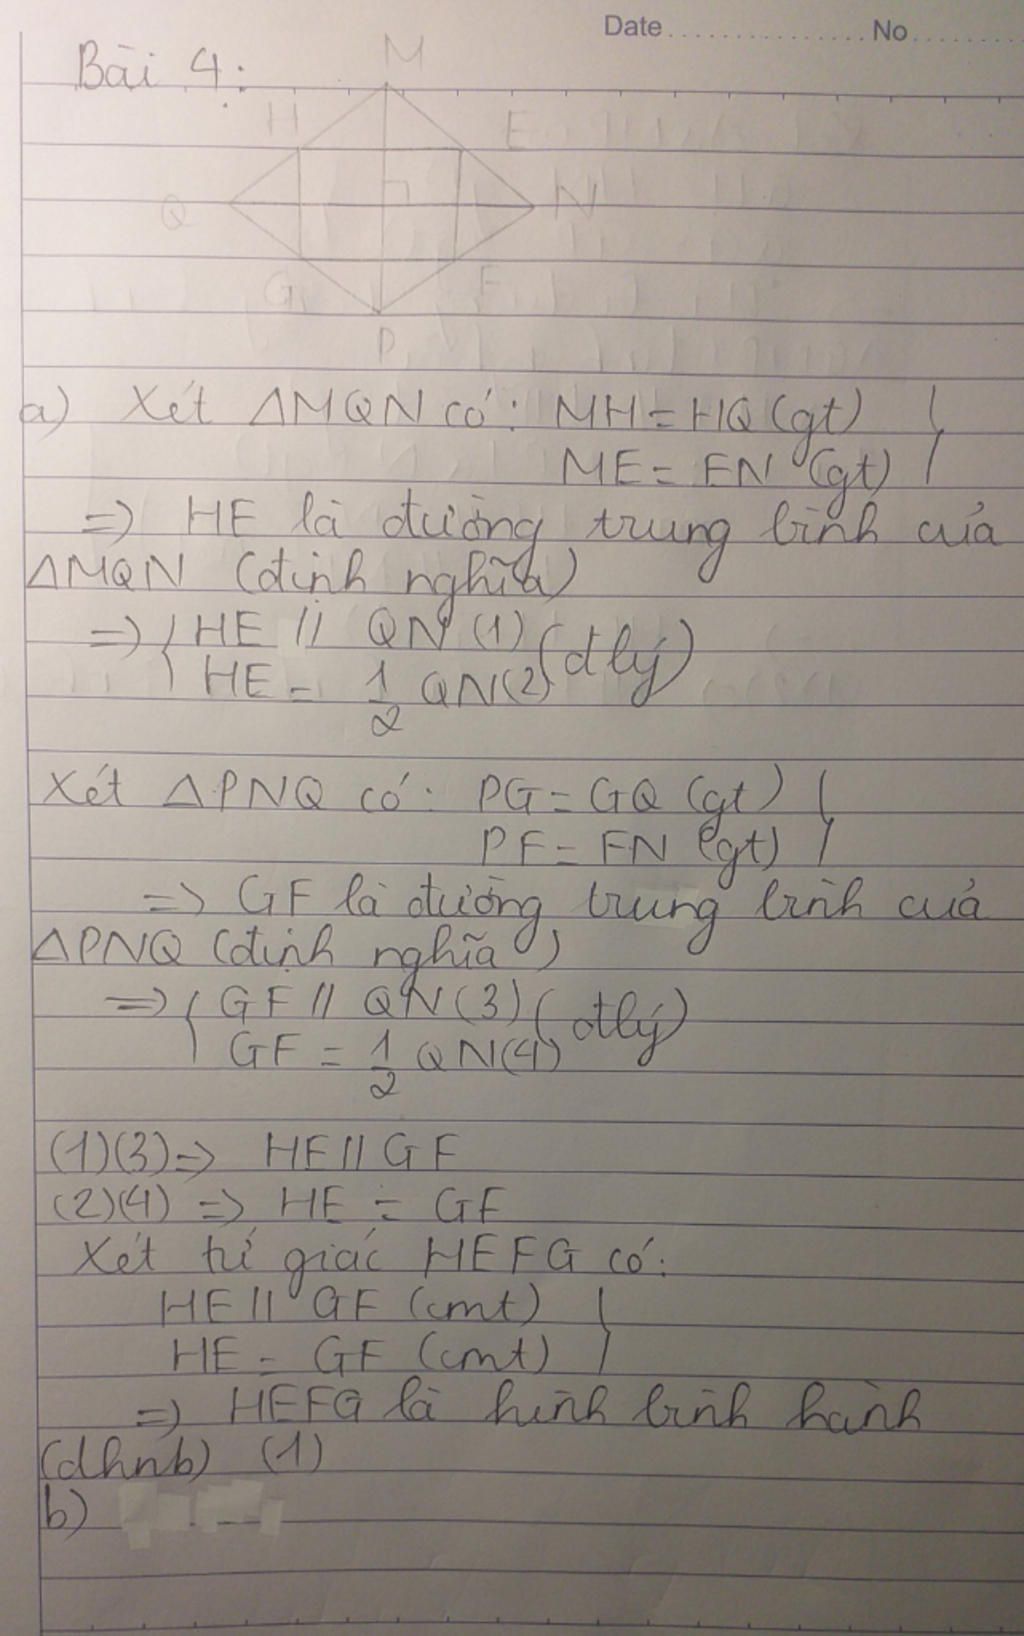 Date ................ No ........
Bài 4:
M
H E
Q N
G F
P
a) Xét ΔMQN có: MH = HQ (gt)
ME = EN (gt)
=> HE là đường trung bình của
ΔMQN (định nghĩa)
=> HE // QN (1)
HE = 1/2 QN (2) (đlý)
Xét ΔPNQ có: PG = GQ (gt)
PF = FN (gt)
=> GF là đường trung bình của
ΔPNQ (định nghĩa)
=> GF // QN (3)
GF = 1/2 QN (4) (đlý)
(1)(3) => HE // GF
(2)(4) => HE = GF
Xét tứ giác HEFG có:
HE // GF (cmt)
HE = GF (cmt)
=> HEFG là hình bình hành
(dhnb) (1)
b)